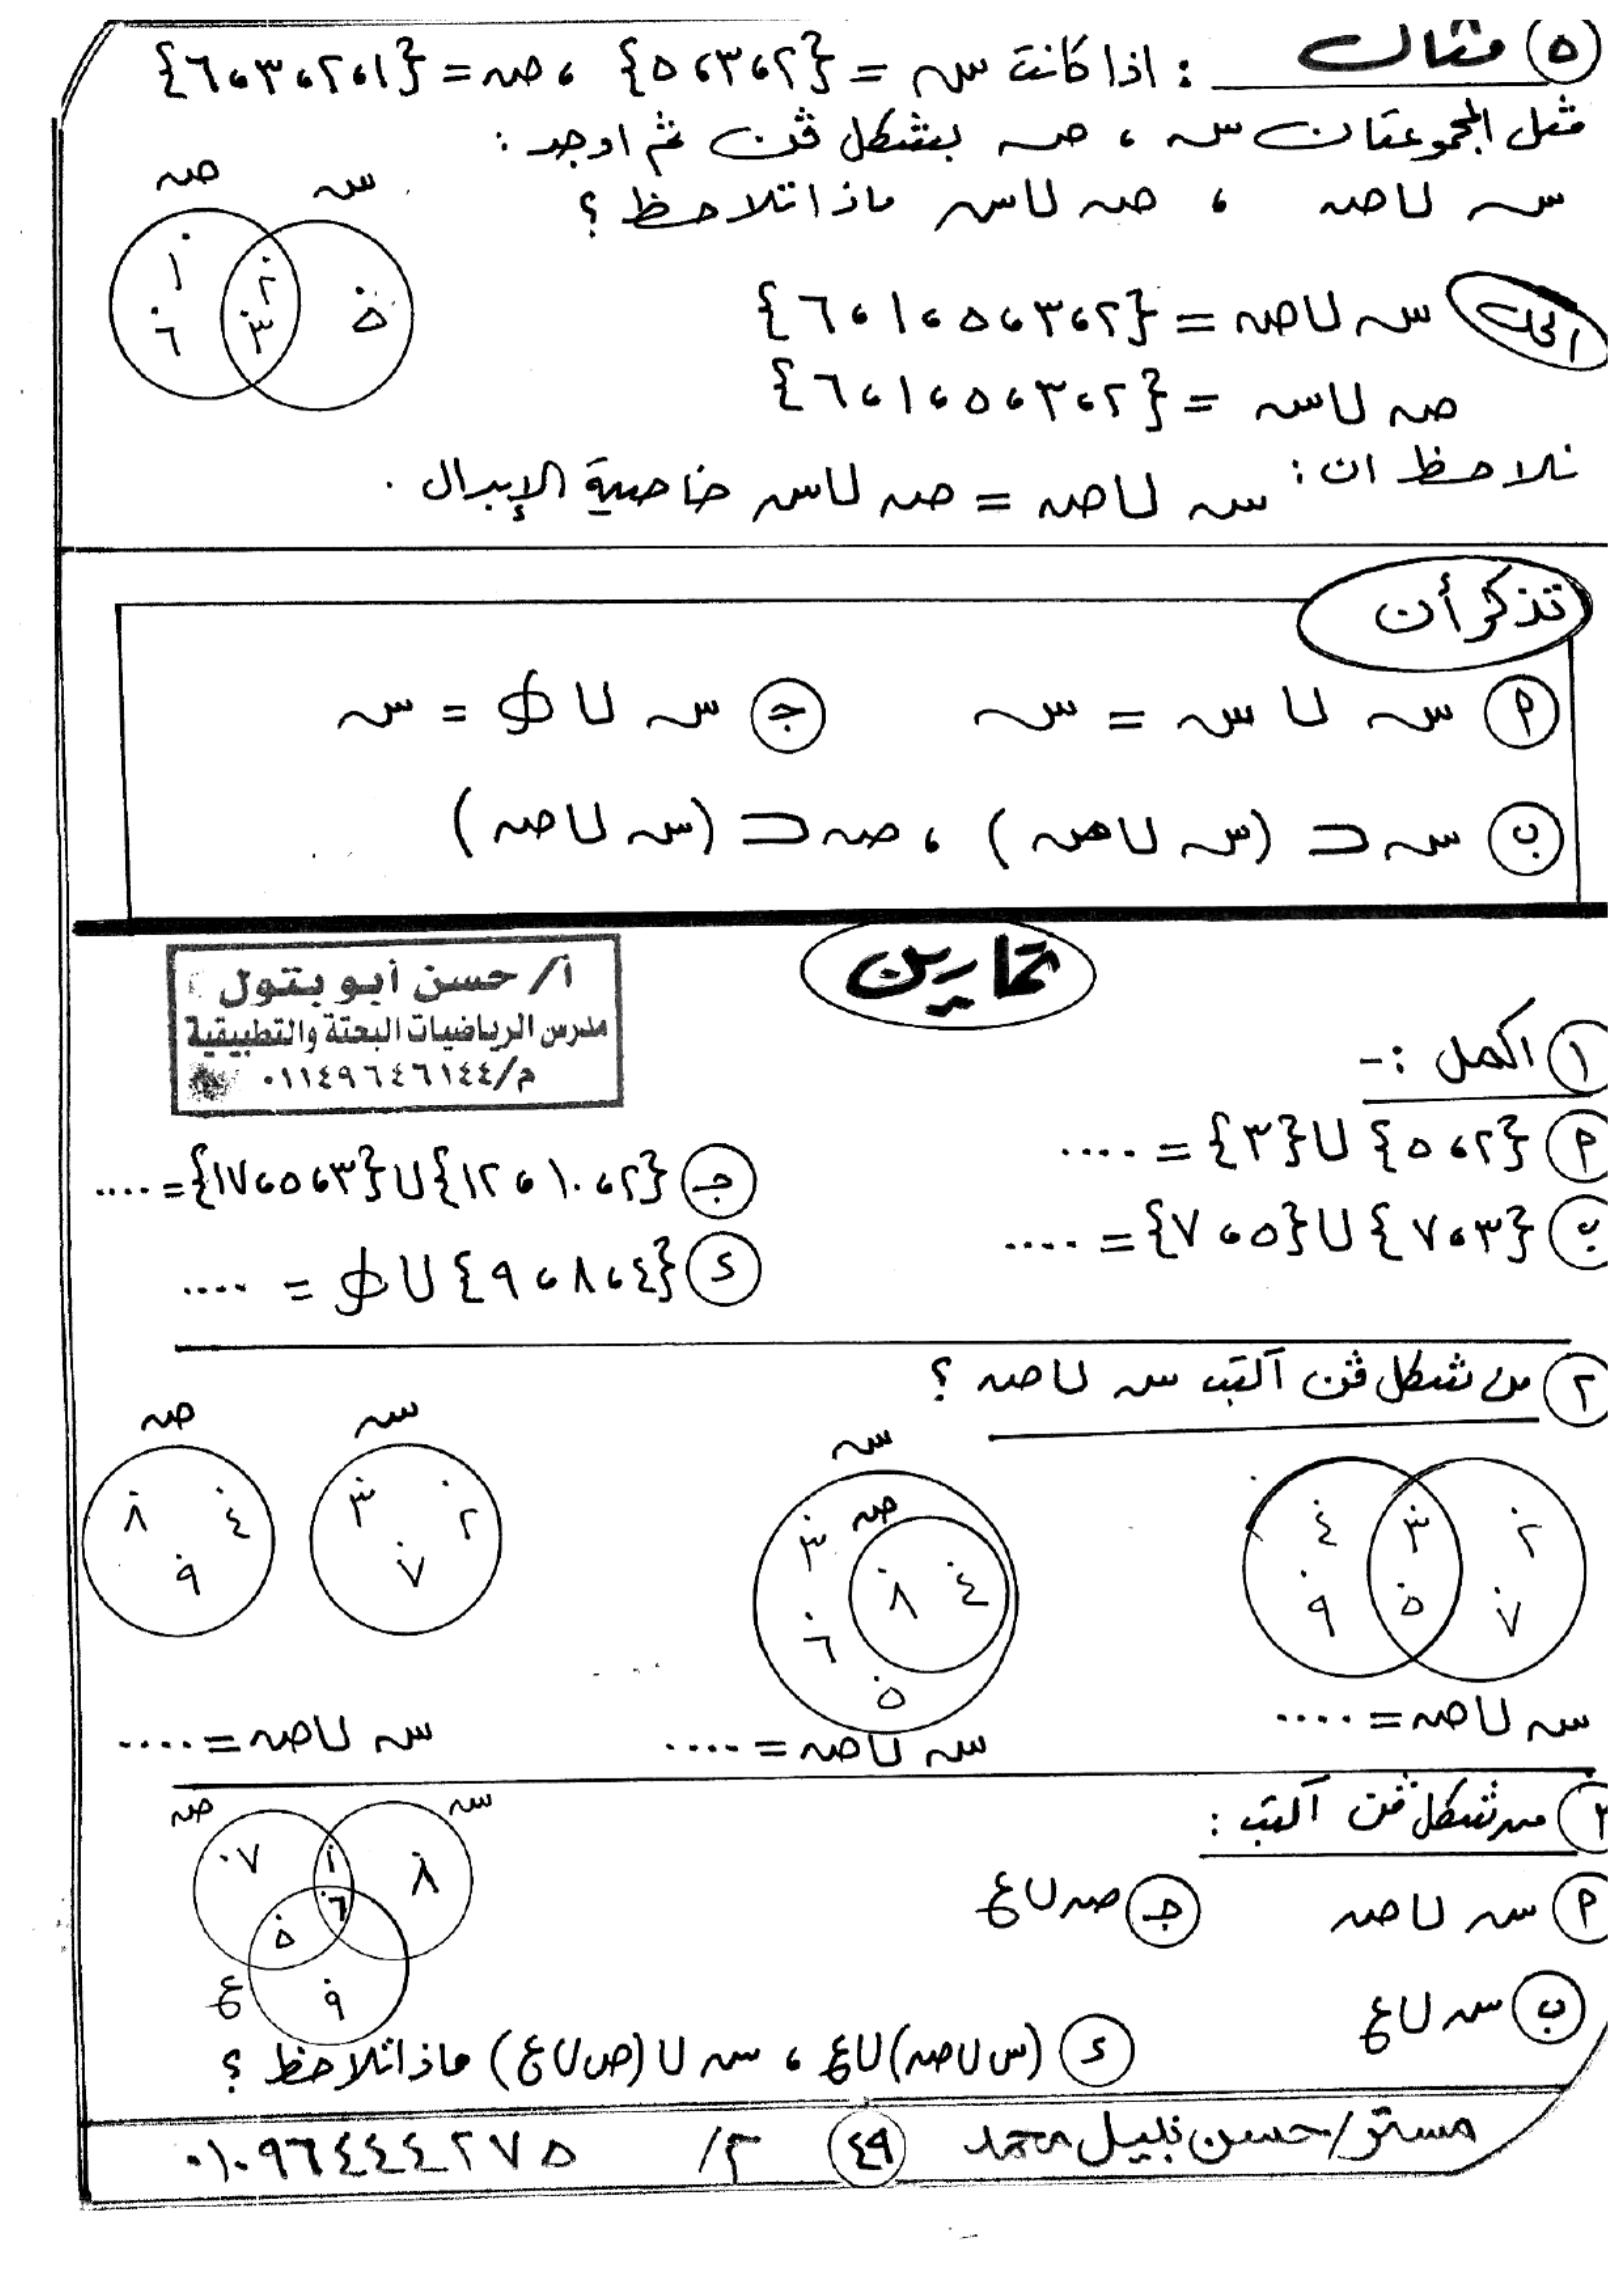 ٥ مثال : اذا كانت س = {٢، ٣، ٥} ، ص = {١، ٢، ٣، ٦}
مثل المجموعتان س ، ص بشكل ڤن ثم اوجد :
س ∪ ص ، ص ∪ س ماذا تلاحظ ؟
ص س
١ ٢ ٥
٦ ٣
الحل س ∪ ص = {٢، ٣، ٥، ١، ٦}
ص ∪ س = {٢، ٣، ٥، ١، ٦}
نلاحظ ان : س ∪ ص = ص ∪ س خاصية الإبدال .
تذكر أن
٩ س ∪ س = س جـ س ∪ ∅ = س
ب س ⊂ (س ∪ ص) ، ص ⊂ (س ∪ ص)
تمارين
أ/ حسن أبو بتول
مدرس الرياضيات البحتة والتطبيقية
م/٠١١٤٩٦٤٦١٤٤
١ اكمل :-
٩ {٢، ٥} ∪ {٣} = ....
جـ {٢، ١٠، ١٢} ∪ {٣، ٥، ١٧} = ....
ب {٣، ٧} ∪ {٥، ٧} = ....
د {٤، ٨، ٩} ∪ ∅ = ....
٢ من شكل ڤن اكتب س ∪ ص ؟
٢ ٣ ٤
٧ ٥ ٩
س ∪ ص = ....
س
ص
٣ ٤ ٨
٦
٥
س ∪ ص = ....
س ص
٢ ٣ ٤ ٨
٧ ٩
س ∪ ص = ....
٣ من شكل ڤن اكتب :
س ص
٨ ١ ٧
٦
٥
٩
ع
٩ س ∪ ص جـ ص ∪ ع
ب س ∪ ع
د (س ∪ ص) ∪ ع ، س ∪ (ص ∪ ع) ماذا تلاحظ ؟
مستر/ حسن نبيل محمد ٤٩ م/ ٠١٠٩٦٤٤٤٢٧٥